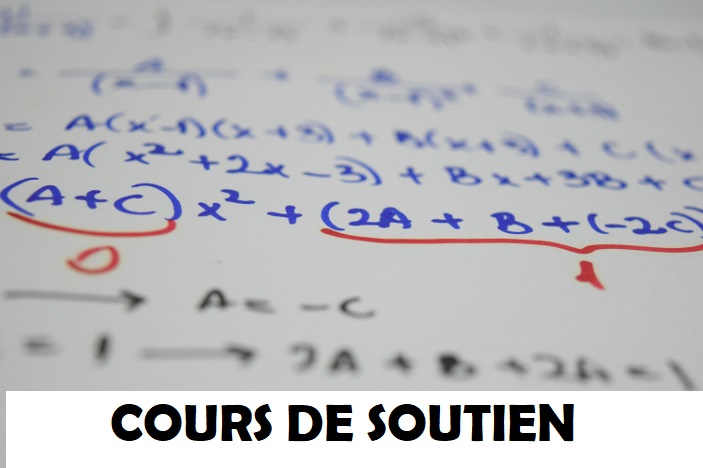 = A(x-1)(x+3) + B(x+3) + C(x
= A(x²+2x-3) + Bx+3B+C
(A+C)x² + (2A + B+(-2C)
0 1
→ A = -C
= 1 → 2A + B +2A = 1
COURS DE SOUTIEN